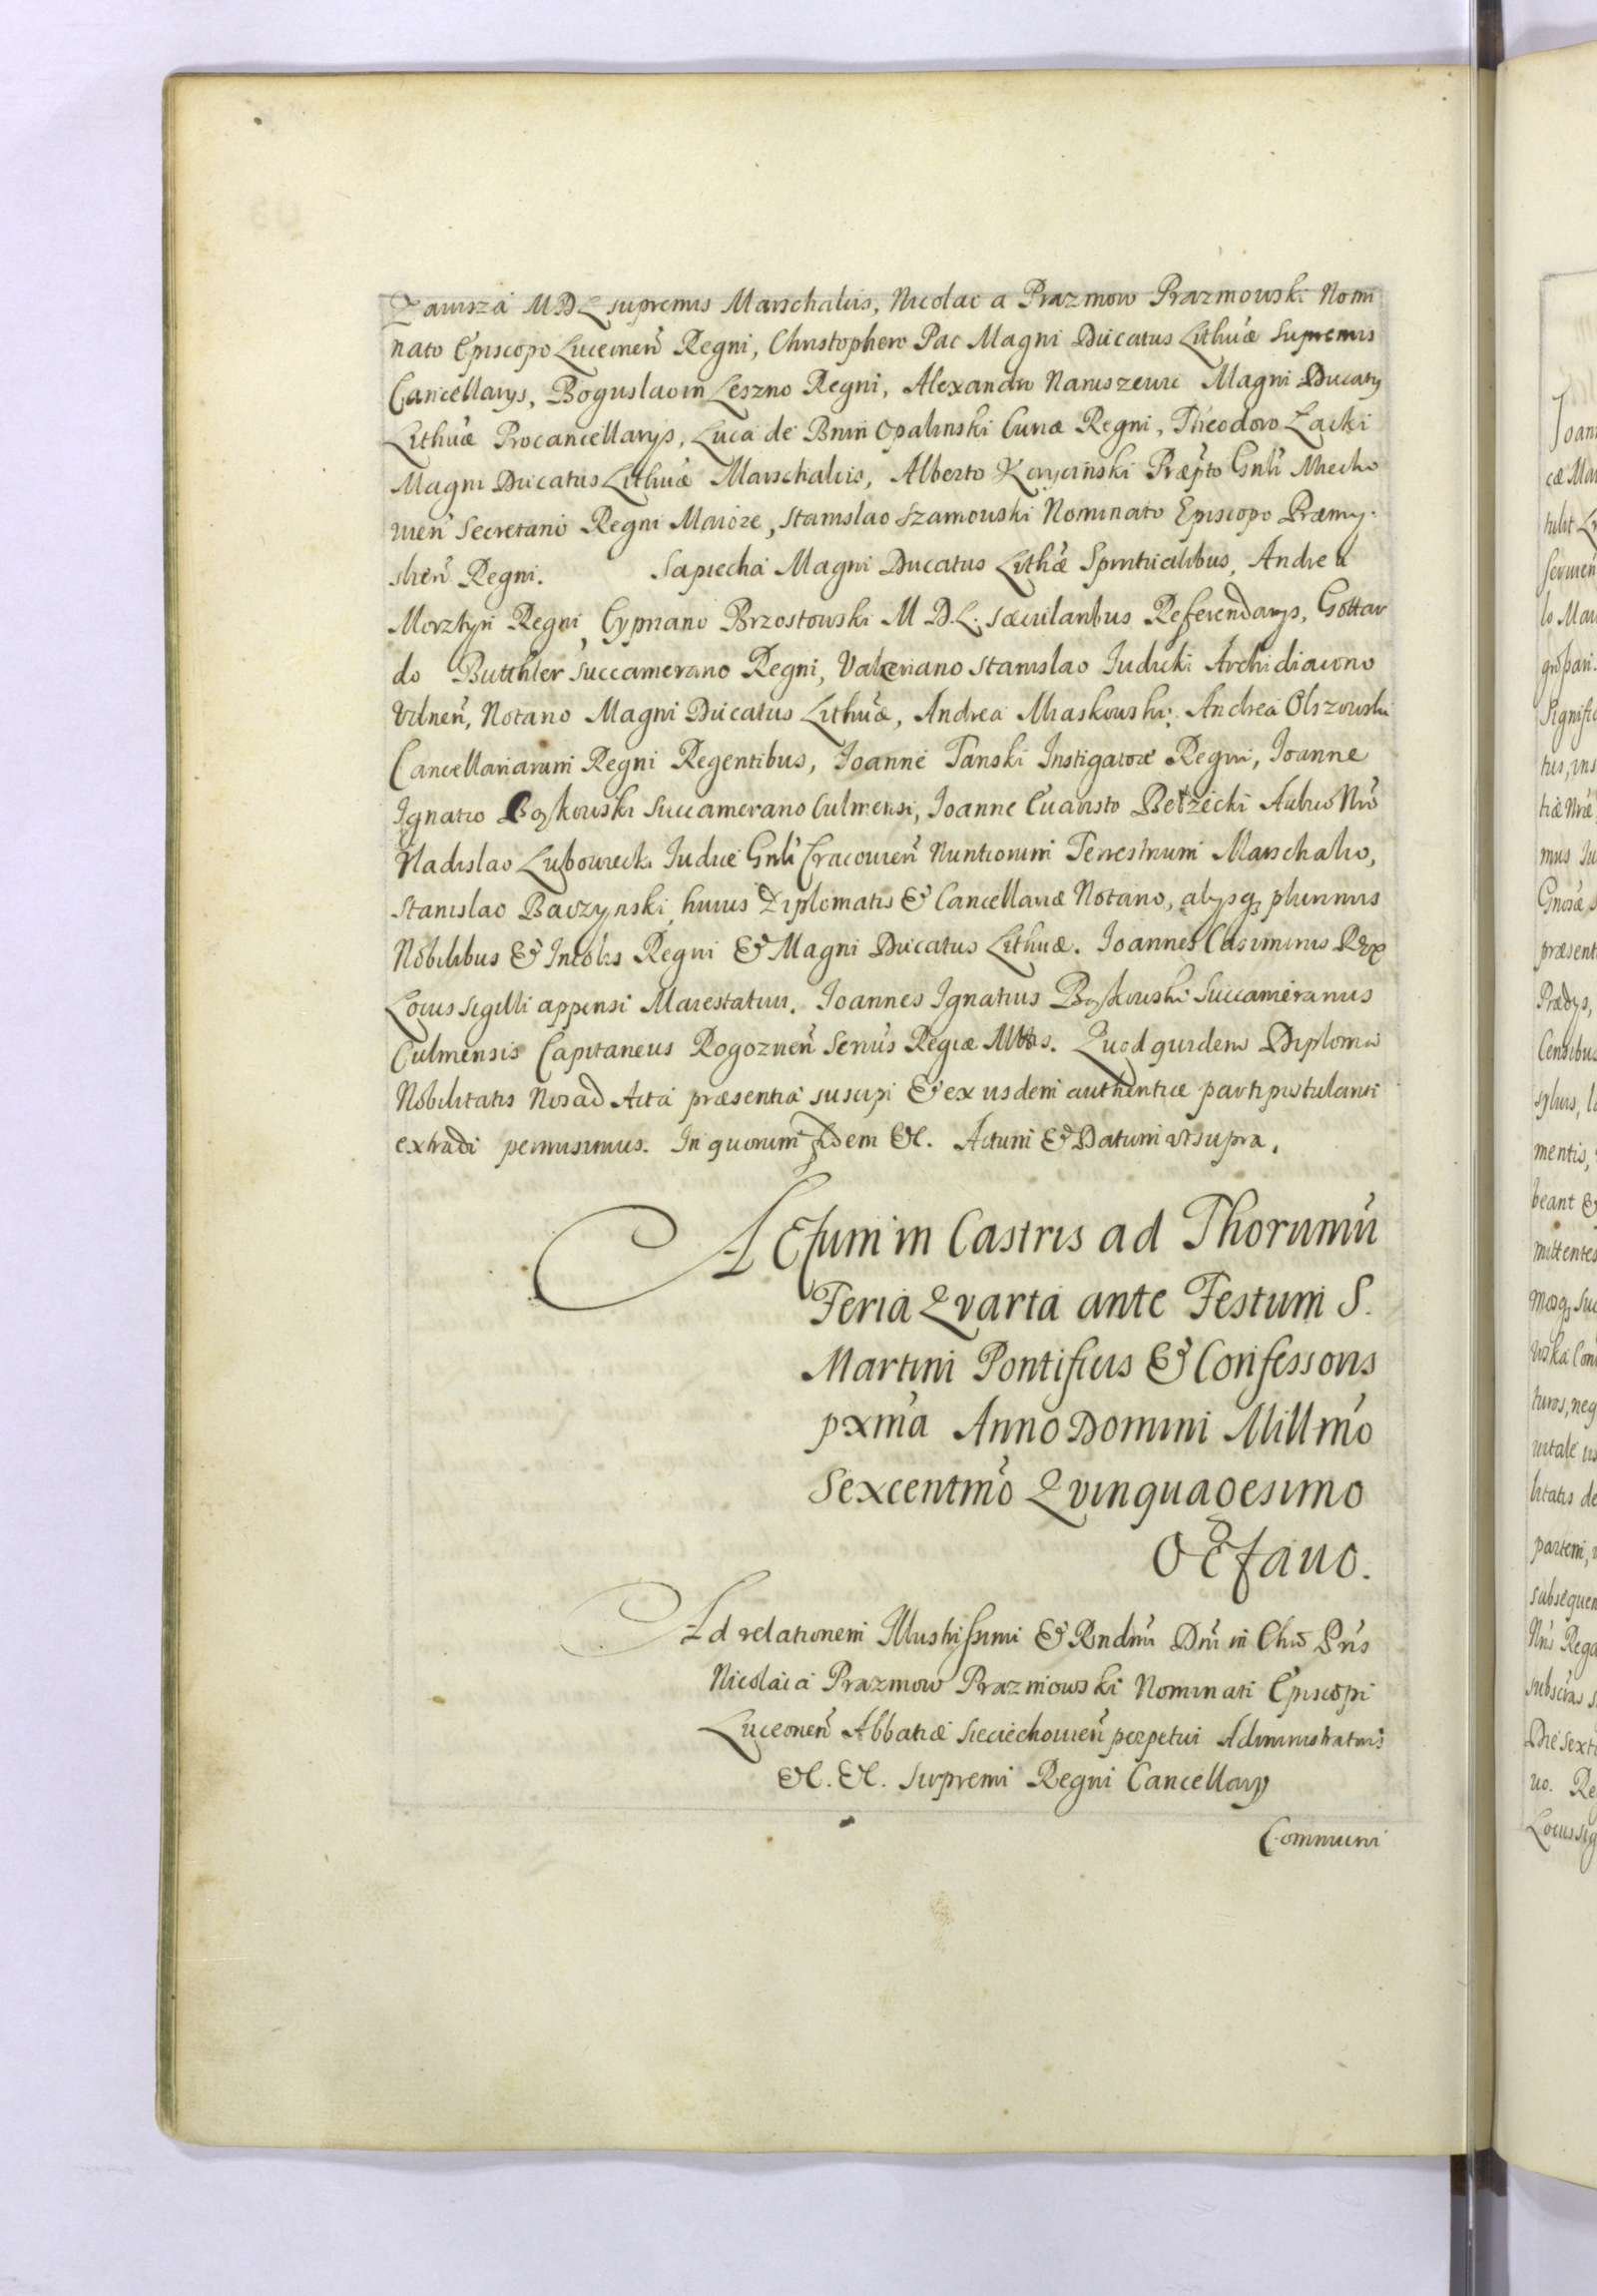 Zawisza M.D.L. supremis Marschalcis, Nicolao a Prazmow Prazmowski Nomi
nato Episcopo Luceorien̄ Regni, Christophero Pac Magni Ducatus Lithuæ Supremis
Cancellarys, Boguslao in Leszno Regni, Alexandro Naruszewic Magni Ducatꝰ
Lithuæ Procancellarys, Luca de Bnin Opalinski Curiæ Regni, Theodoro Lacki
Magni Ducatus Lithuæ Marschalcis, Alberto Koryciński Præpto Gnli Miecho
uien̄ Secretario Regni Maiore, Stanislao Szamouski Nominato Episcopo Præmy-
slien̄ Regni. Sapiecha Magni Ducatus Lithæ Spiritualibus, Andrea
Morztyn Regni, Cypriano Brzostowski M.D.L. sæcularibus Referendarys, Gottar
do Butthler Succamerario Regni, Valeriano Stanislao Iudicki Archidiacono
Vilnen̄, Notario Magni Ducatus Lithuæ, Andrea Miaskouski, Andrea Olszowski
Cancellariarum Regni Regentibus, Joanne Tanski Instigatore Regni, Joanne
Ignatio Bąkowski Succamerario Culmensi, Joanne Euaristo Bełzecki Aulico Nro
Vladislao Lubowiecki Iudice Gnli Cracouien̄ Nuntiorum Terrestrium Marschalco,
Stanislao Baczynski, huius Diplomatis & Cancellariæ Notario, alysqꝫ plurimis
Nobilibus & Incolis Regni & Magni Ducatus Lithuæ. Joannes Casimirus Rex
Locus sigilli appensi Maiestatici. Joannes Ignatius Bąkowski Succamerarius
Culmensis Capitaneus Rogoznen̄ Serius Regiæ Mttis. Quod quidem Diploma
Nobilitatis Nos ad Acta præsentia suscipi & ex ijsdem authentice parti postulanti
extradi permisimus. In quorum fidem &c. Actum & Datum vt supra.
Actum in Castris ad Thoruniū
Feria Qvarta ante Festum S.
Martini Pontificis & Confessoris
pxma Anno Domini Millmo
Sexcentmo Qvinquagesimo
Octauo.
Ad relationem Illustrissimi & Rndmi Dni in Chro Pris
Nicolai a Prazmow Prazmowski Nominati Episcopi
Luceorien̄ Abbatiæ Sieciechouien̄ perpetui Administratoris
&c. &c. Supremi Regni Cancellarij
Communi